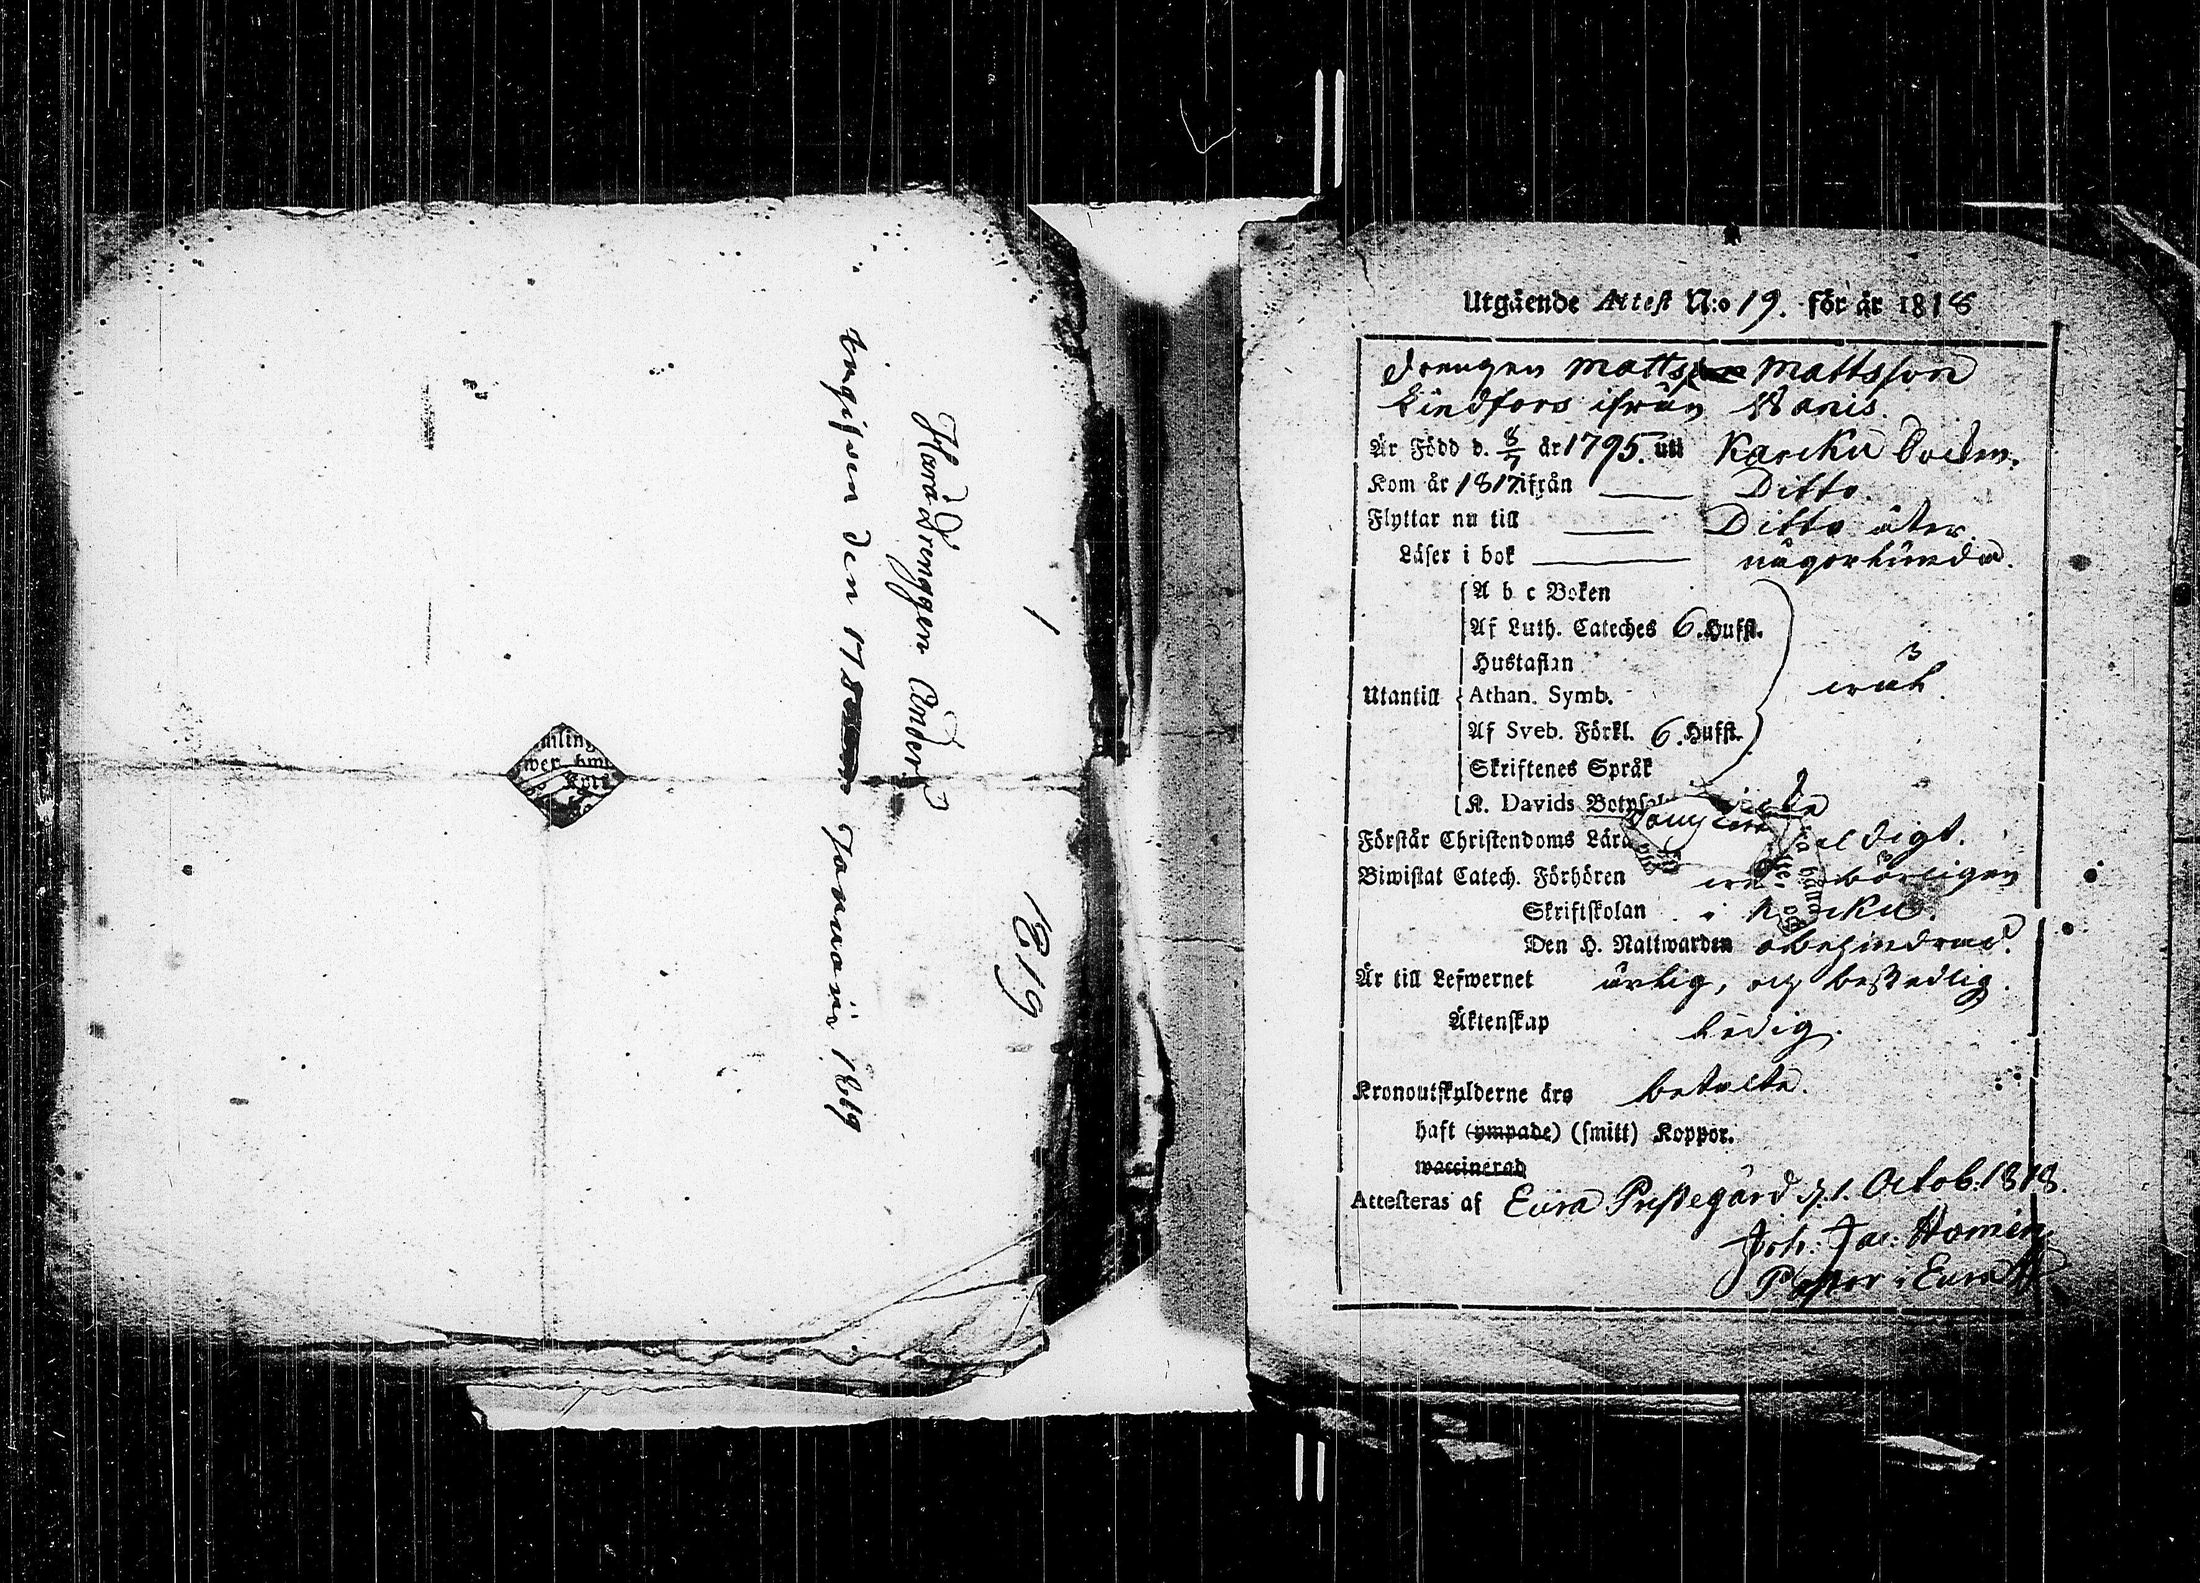 1
1819
Håradrenggen Anders
den 17 Januarii 1819
Utgående Attest N:o 19. för år 1818
Drengen Matts Mattsson
Lindfors ifrån Wanis.
Är Född d. 8/7 år 1795. uti Karcku Socken.
Kom år 1817 ifrån Ditto.
Flyttar nu till Ditto åter.
Läser i bok någorlunda.
A b c Boken
Af Luth. Cateches 6. Hufst.
Hustaflan
Utantill Athan. Symb.
Af Sveb. Förkl. 6. Hufst.
Skriftenes Språk
K. Davids Botpsal
Förstår Christendoms Lära
Biwistat Catech. Förhören
Skriftskolan i
Den H. Nattwarden obehindrad.
Är till Lefwernet ärlig, och beskedlig.
Äktenskap ledig.
Kronoutskylderne äro betalte.
haft (ympade) (smitt) Koppor.
waccinerad
Attesteras af Eura Prestegård d. 1. Octob. 1818.
Joh. Jac.
Pastor i Eura